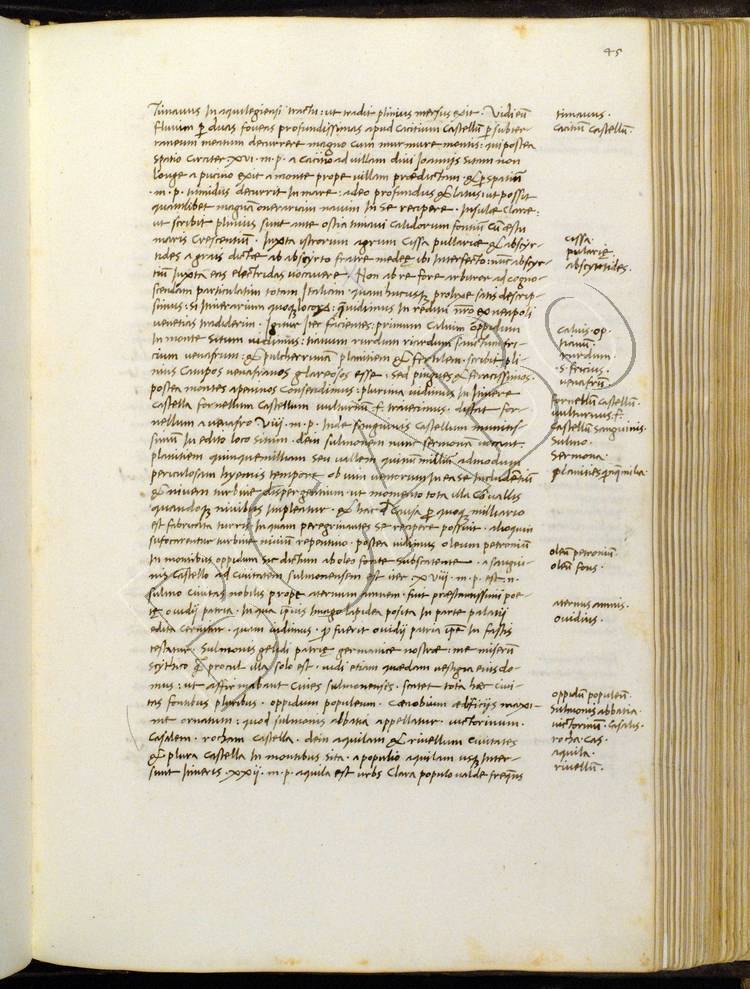 45
Timauus In aquilegiensi tractu: ut tradit plinius mersus exit. Vidi eũ
fluuium ꝑ duas foueas profundissimas apud Cacitium Castellũ ꝑ subter-
raneum meatum decurrere magno cum murmure montis: qui postea
spatio circiter .XVI. m. p. a Cacitio ad uillam diui Joannis sitam non
longe a pucino exit a monte prope uillam prædictam. & ꝑ spatiũ
.m. p. tumidus decurrit In mare: adeo profundus & latus: ut possit
quamlibet magnã onerariam nauim In se recipere. Insulæ Claræ:
ut scribit plinius sunt ante ostia timaui Calidorum fontiũ Cũ æstu
maris Crescentiũ. Iuxta istrorum agrum Cissa pullariæ & absyr-
tides a grais dictæ ab absyrto fratre medeę ibi Interfecto: nunc absyr-
tiũ Iuxta eas electridas uocauere. Non ab re fore arbitror ad cogno-
scendam particulatim totam Italiam. quam hucusqꝫ prolixe satis descrip-
simus: si Itinerarium quoqꝫ locoꝝ: quę uidimus In reditu nr̃o ex neapoli
venetias tradiderim. Igitur Iter facientes: primum Caluum oppidum
In monte situm uidimus: rurdum
cium venafrum: & pulcherrimã planitiem & fertilem. scribit pli-
nius Campos venafranos glareosos esse. sed pingues & feracissimos.
postea montes apeninos Conscendimus: plurima uidimus In Itinere
Castella fornellum Castellum vulturnũ f. traieximus. distat for-
nellum a uenafro VIII. m. p. Inde sanguinis Castellum
In edito loco situm. dein sulmonem nunc sermona uocant.
planitiem quinquemilliam seu uallem quinqꝫ milliũ admodum
periculosam hyemis tempore ob uim uentorum In ea se Includentiũ
& niuem turbine dispergentium. ut momento tota illa Conuallis
quandoqꝫ niuibus Impleatur. & hac Causa ꝑ quoqꝫ milliario
est fabricata turris In quam peregrinantes se recipere possint. alioquin
suffocarentur turbine niuium repentino. postea uidimus oleum petroniũ
In montibus oppidum sic dictum ab olei fonte subscatente. a sangui-
nis Castello ad Ciuitatem sulmonensem est iter XVIII. m. p. est .n.
sulmo Ciuitas nobilis prope aternum amnem. fuit præstantissimi poe-
tę ouidij patria. In qua ipsius Imago lapidea posita In parte palatii
edita Cernitur. quam uidimus. fuerit ouidij patria ipse In fastis
testatur. Sulmonis gelidi patrię germanice nostræ: me miserũ
scythico procul illa solo est. uidi etiam quædam uestigia eius do-
mus: ut affirmabant Ciues sulmonensis. scatet tota hæc ciui-
tas fontibus pluribus. oppidum populeum. Cœnobium ædificijs maxi-
me ornatum: quod sulmonis abbatia appellatur. uictorinum.
Casalem. rocham Castella. dein aquilam & riuellum Ciuitates
& plura Castella In montibus sita. a populio aquilam usqꝫ Inter-
sunt Itineris .XXIJ. m. p. aquila est urbs Clara populo ualde frequẽs
timauus.
Cacitiũ Castellũ.
cissa.
pullarię.
absyrtides.
Caluũ. op.
rurdum.
venafrũ
fornellũ Castellũ.
vulturnus. f.
Castellũ Sanguinis.
Sulmo.
Sermona.
planities qnqꝫ milia.
oleũ petroniũ.
olei fons.
aternus amnis.
ouidius.
oppidũ populeũ.
Sulmonis abbatia.
uictorinũ. Casalis.
rocha. Cas.
aquila.
riuellũ.